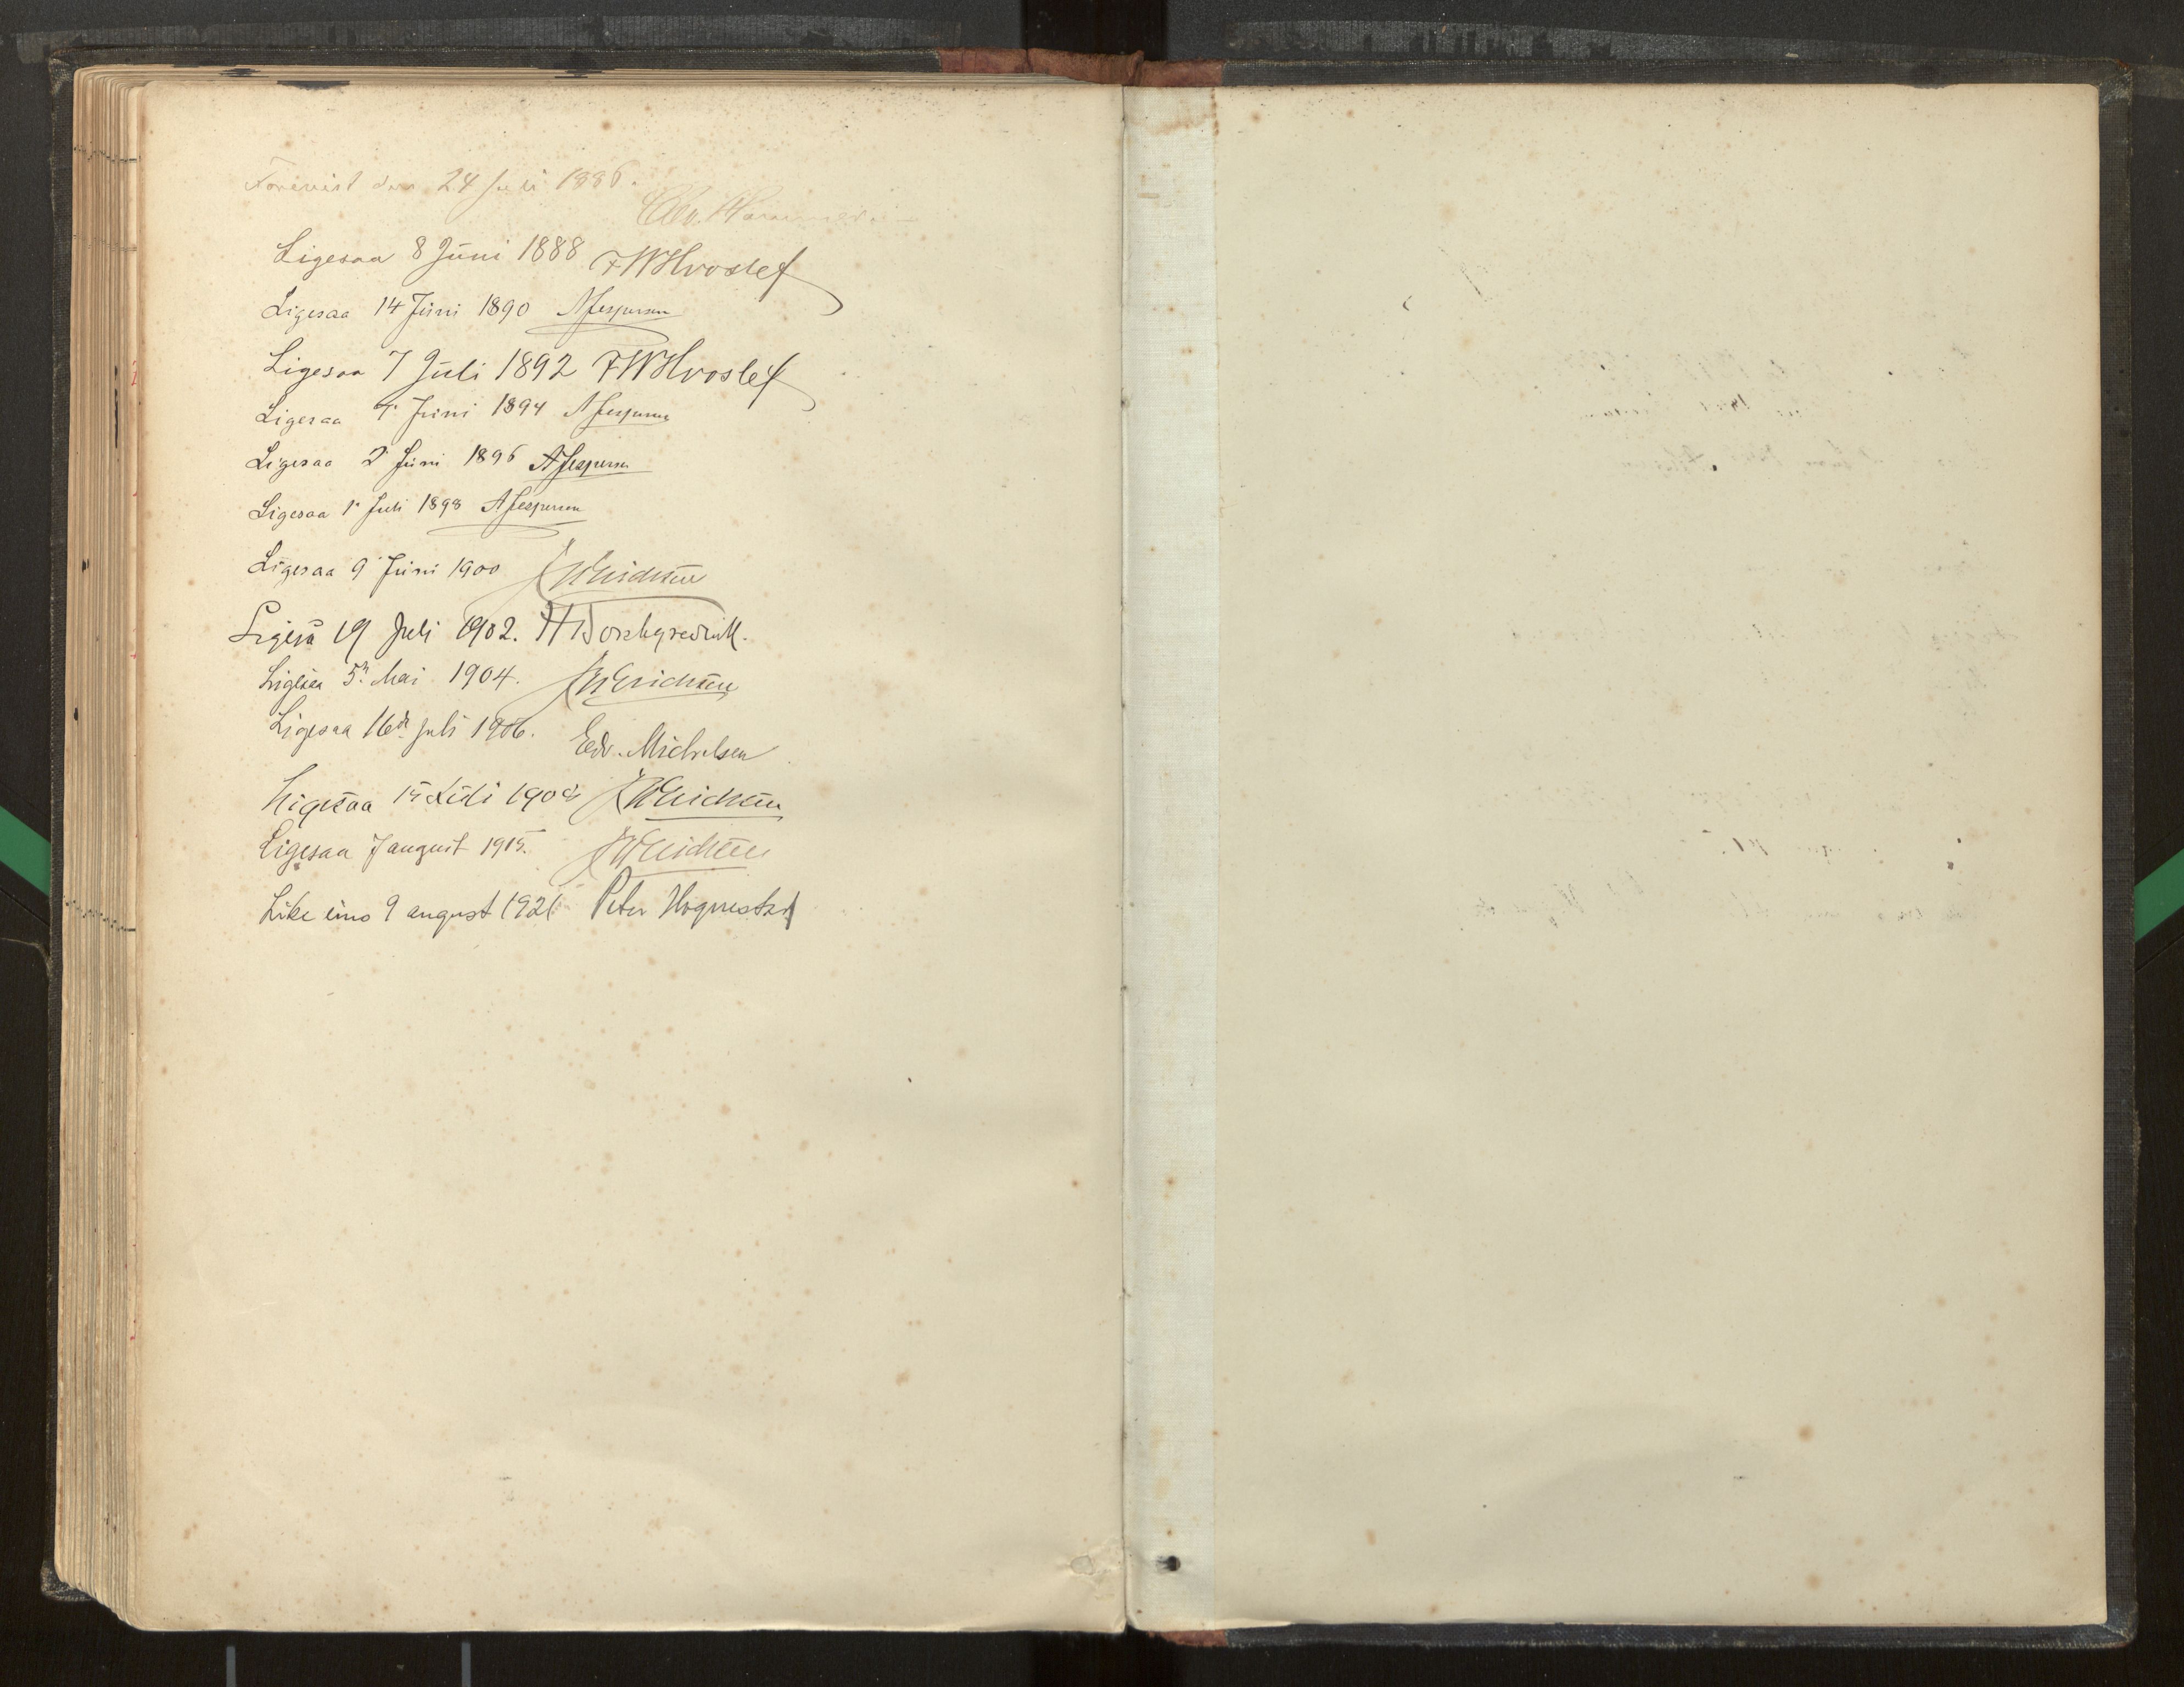 Forevist den 24 Juli 1886.
Ligesaa 8 Juni 1888 FWHvoslef
Ligesaa 14 Juni 1890 AJespersen
Ligesaa 7 Juli 1892 FWHvoslef
Ligesaa Juni 1894 AJespersen
Ligesaa 2' Juni 1896 AJespersen
Ligesaa 1' Juli 1898 AJespersen
Ligesaa 9 Juni 1900 Erichsen
Ligeså 19 Juli 1902. HBorchgrevink.
Ligesaa 5te Mai 1904. Erichsen
Ligesaa 16de Juli 1906. Edv. Michelsen
Ligesaa Juli 1908 Erichsen
Ligesaa 7 august 1915. Erichsen
Like eins 9 august 1921 Peter Hognestad